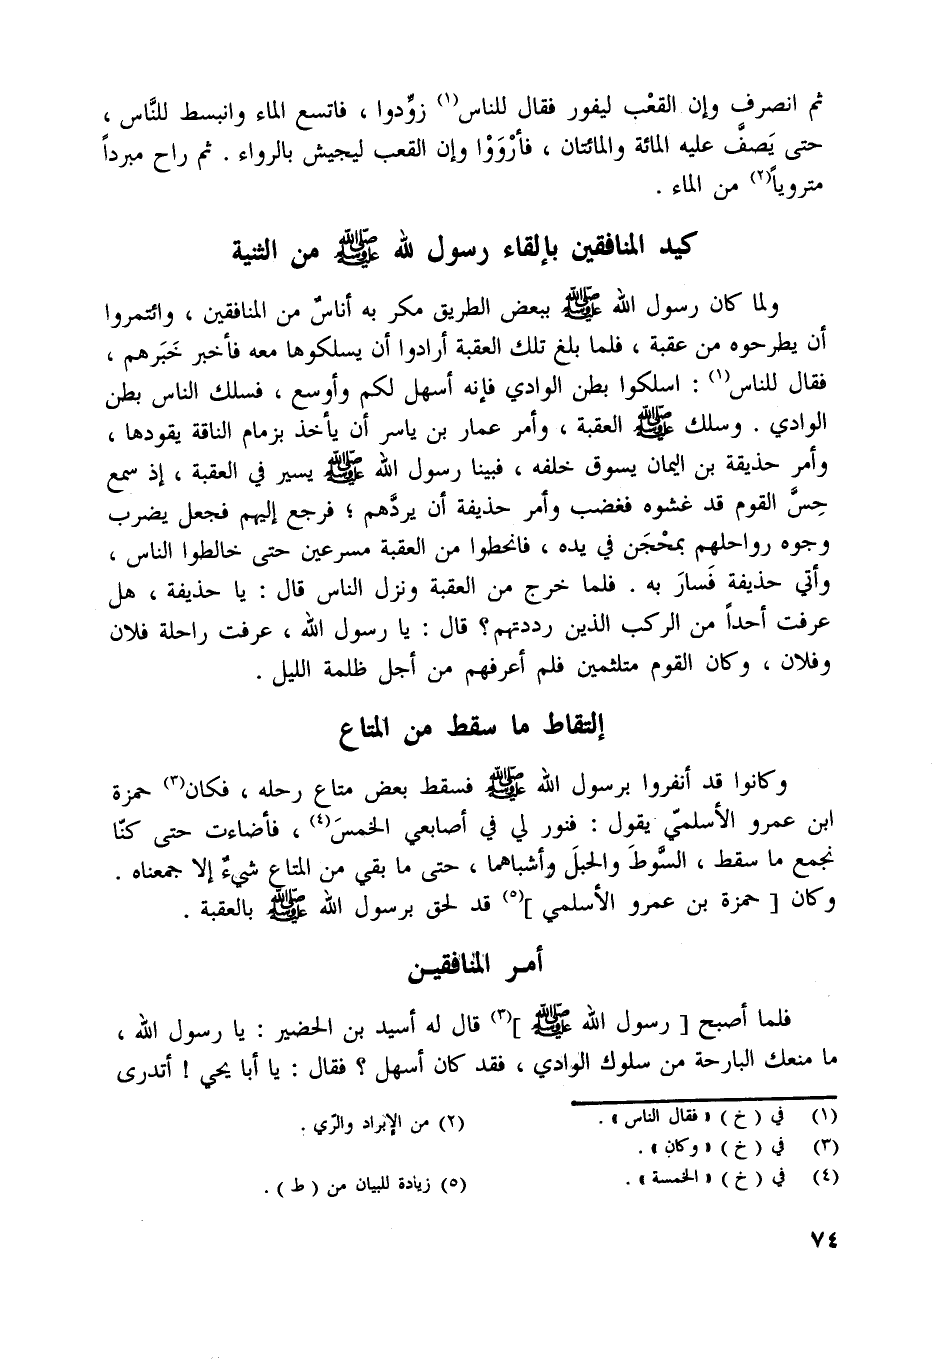 ثم انصرف وإن القعْب ليفور فقال للناس(١) زوِّدوا ، فاتسع الماء وانبسط للنَّاس ،
حتى يَصفَّ عليه المائة والمائتان ، فأرْوَوْا وإن القعب ليجيش بالرواء . ثم راح مبرداً
متروياً(٢) من الماء .
كيد المنافقين بإلقاء رسول لله ﷺ من الثنية
ولما كان رسول الله ﷺ ببعض الطريق مكر به أناسٌ من المنافقين ، وائتمروا
أن يطرحوه من عقبة ، فلما بلغ تلك العقبة أرادوا أن يسلكوها معه فأخبر خَبَرهم ،
فقال للناس(١) : اسلكوا بطن الوادي فإنه أسهل لكم وأوسع ، فسلك الناس بطن
الوادي . وسلك ﷺ العقبة ، وأمر عمار بن ياسر أن يأخذ بزمام الناقة يقودها ،
وأمر حذيفة بن اليمان يسوق خلفه ، فبينا رسول الله ﷺ يسير في العقبة ، إذ سمع
حِسَّ القوم قد غشوه فغضب وأمر حذيفة أن يردَّهم ؛ فرجع إليهم فجعل يضرب
وجوه رواحلهم بمحْجَن في يده ، فانحطوا من العقبة مسرعين حتى خالطوا الناس ،
وأتي حذيفة فَسارَ به . فلما خرج من العقبة ونزل الناس قال : يا حذيفة ، هل
عرفت أحداً من الركب الذين رددتهم؟ قال : يا رسول الله ، عرفت راحلة فلان
وفلان ، وكان القوم متلثمين فلم أعرفهم من أجل ظلمة الليل .
إلتقاط ما سقط من المتاع
وكانوا قد أنفروا برسول الله ﷺ فسقط بعض متاع رحله ، فكان(٣) حمزة
ابن عمرو الأسلميّ يقول : فنور لي في أصابعي الخمسَ(٤) ، فأضاءت حتى كنّا
نجمع ما سقط ، السَّوطَ والحبلَ وأشباهما ، حتى ما بقي من المتاع شيءٌ إلا جمعناه .
وكان [ حمزة بن عمرو الأسلمي ](٥) قد لحق برسول الله ﷺ بالعقبة .
أمر المنافقين
فلما أصبح [ رسول الله ﷺ ](٣) قال له أسيد بن الحضير : يا رسول الله ،
ما منعك البارحة من سلوك الوادي ، فقد كان أسهل ؟ فقال : يا أبا يحي ! أتدرى
(١) في ( خ ) « فقال الناس » .
(٢) من الإبراد والرّي .
(٣) في ( خ ) « وكان » .
(٤) في ( خ ) « الخمسة » .
(٥) زيادة للبيان من ( ط ) .
٧٤